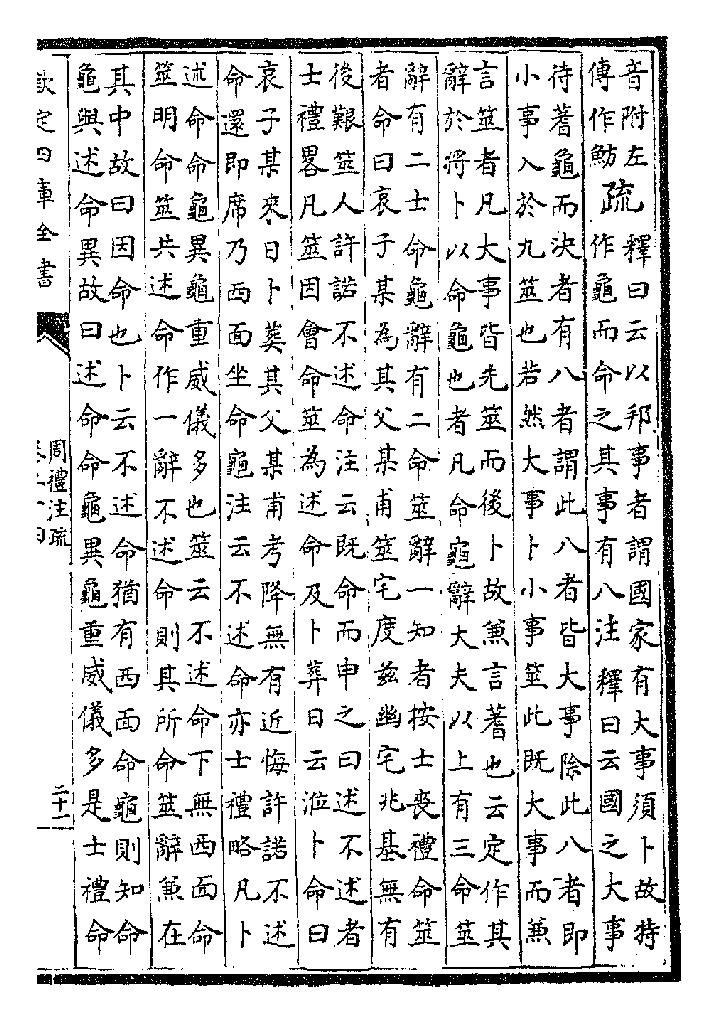 音附左
傳作魴
疏
釋曰云以邦事者謂國家有大事須卜故特
作龜而命之其事有八注釋曰云國之大事
待蓍龜而決者有八者謂此八者皆大事除此八者即
小事入於九筮也若然大事卜小事筮此既大事而兼
言筮者凡大事皆先筮而後卜故兼言蓍也云定作其
辭於將卜以命龜也者凡命龜辭大夫以上有三命筮
辭有二士命龜辭有二命筮辭一知者按士喪禮命筮
者命曰哀子某為其父某甫筮宅度兹幽宅兆基無有
後艱筮人許諾不述命注云既命而申之曰述不述者
士禮畧凡筮因會命筮為述命及卜葬日云涖卜命曰
哀子某來日卜葬其父某甫考降無有近悔許諾不述
命還即席乃西面坐命龜注云不述命亦士禮略凡卜
述命命龜異龜重威儀多也筮云不述命下無西面命
筮明命筮共述命作一辭不述命則其所命筮辭兼在
其中故曰因命也卜云不述命猶有西面命龜則知命
龜與述命異故曰述命命龜異龜重威儀多是士禮命
欽定四庫全書
周禮注疏
二十一